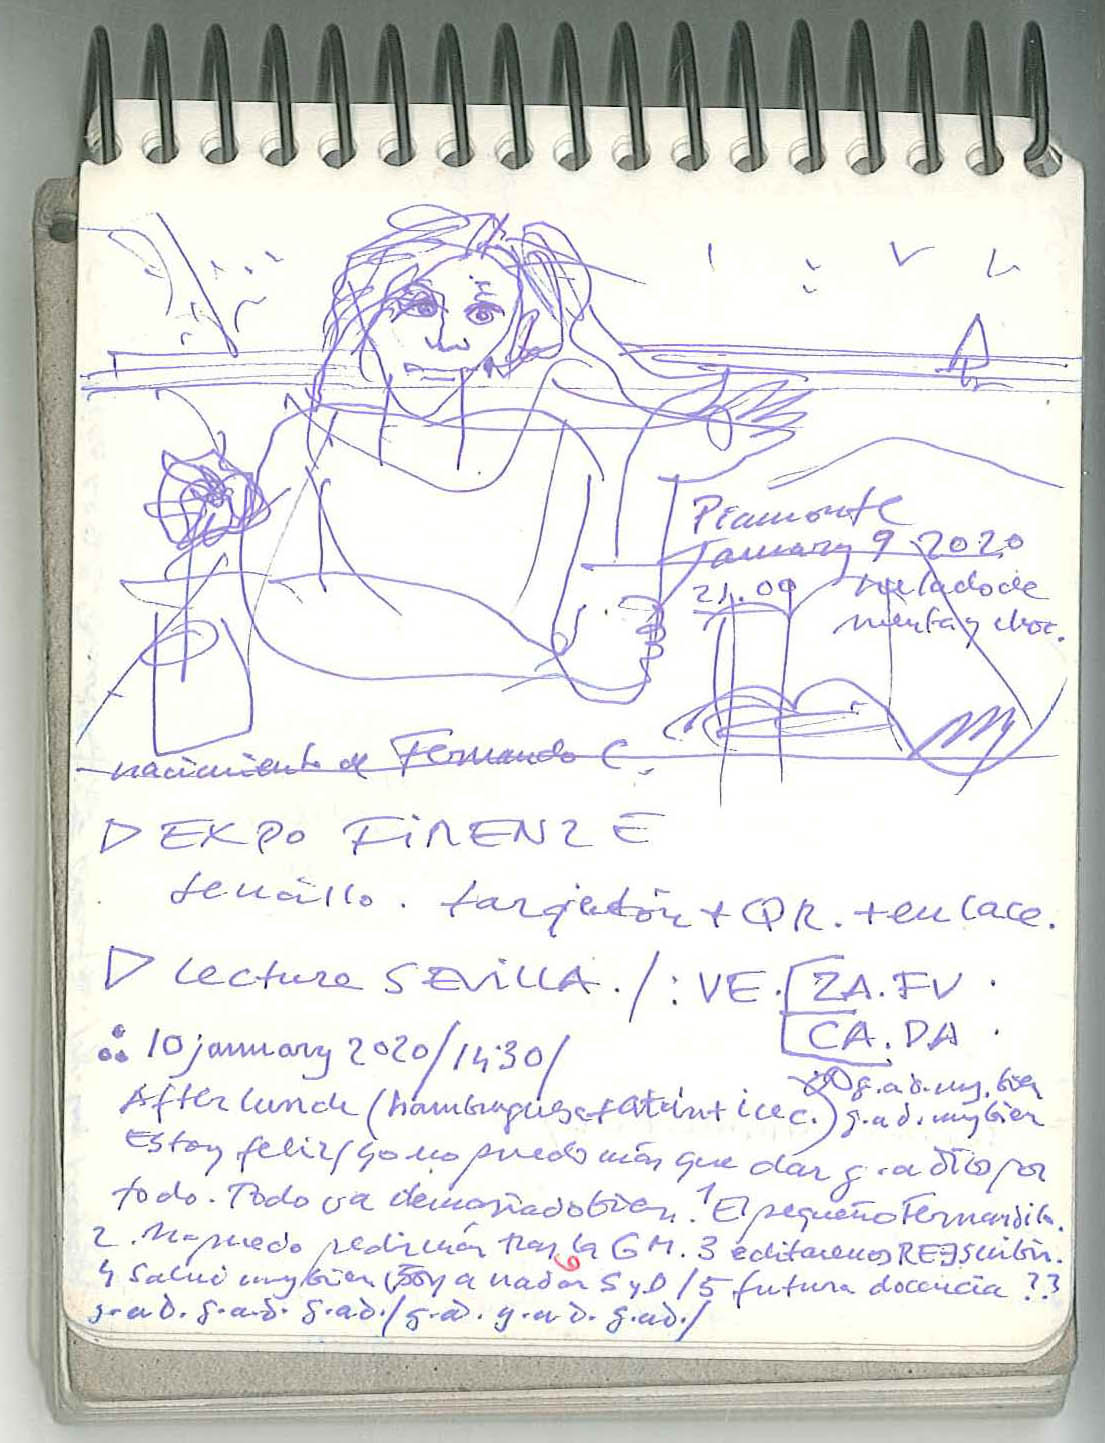 Piamonte
january 9 2020
21.00 helado de
menta y choc.
nacimiento de Fernando C.
▷ EXPO FIRENZE
sencillo. tarjetón + QR. + enlace.
▷ Lectura SEVILLA./: VE. ZA.FV .
CA.DA .
10 january 2020/14:30/
g.a.d. muy bien
After lunch (hamburguesa + atún + ice c.) g.a.d. muy bien
Estoy feliz/ yo no puedo más que dar g.a Dios por
todo. Todo va demasiado bien. 1 El pequeño Fernandito.
2. No puedo pedir más tras la GM. 3 editaremos REESCRIBIR.
4 Salud muy bien (Voy a nadar S y D / 5 futura docencia ??
6
g.a.d. g.a.d. g.ad./ g.a.d. g.a.d. g.ad./